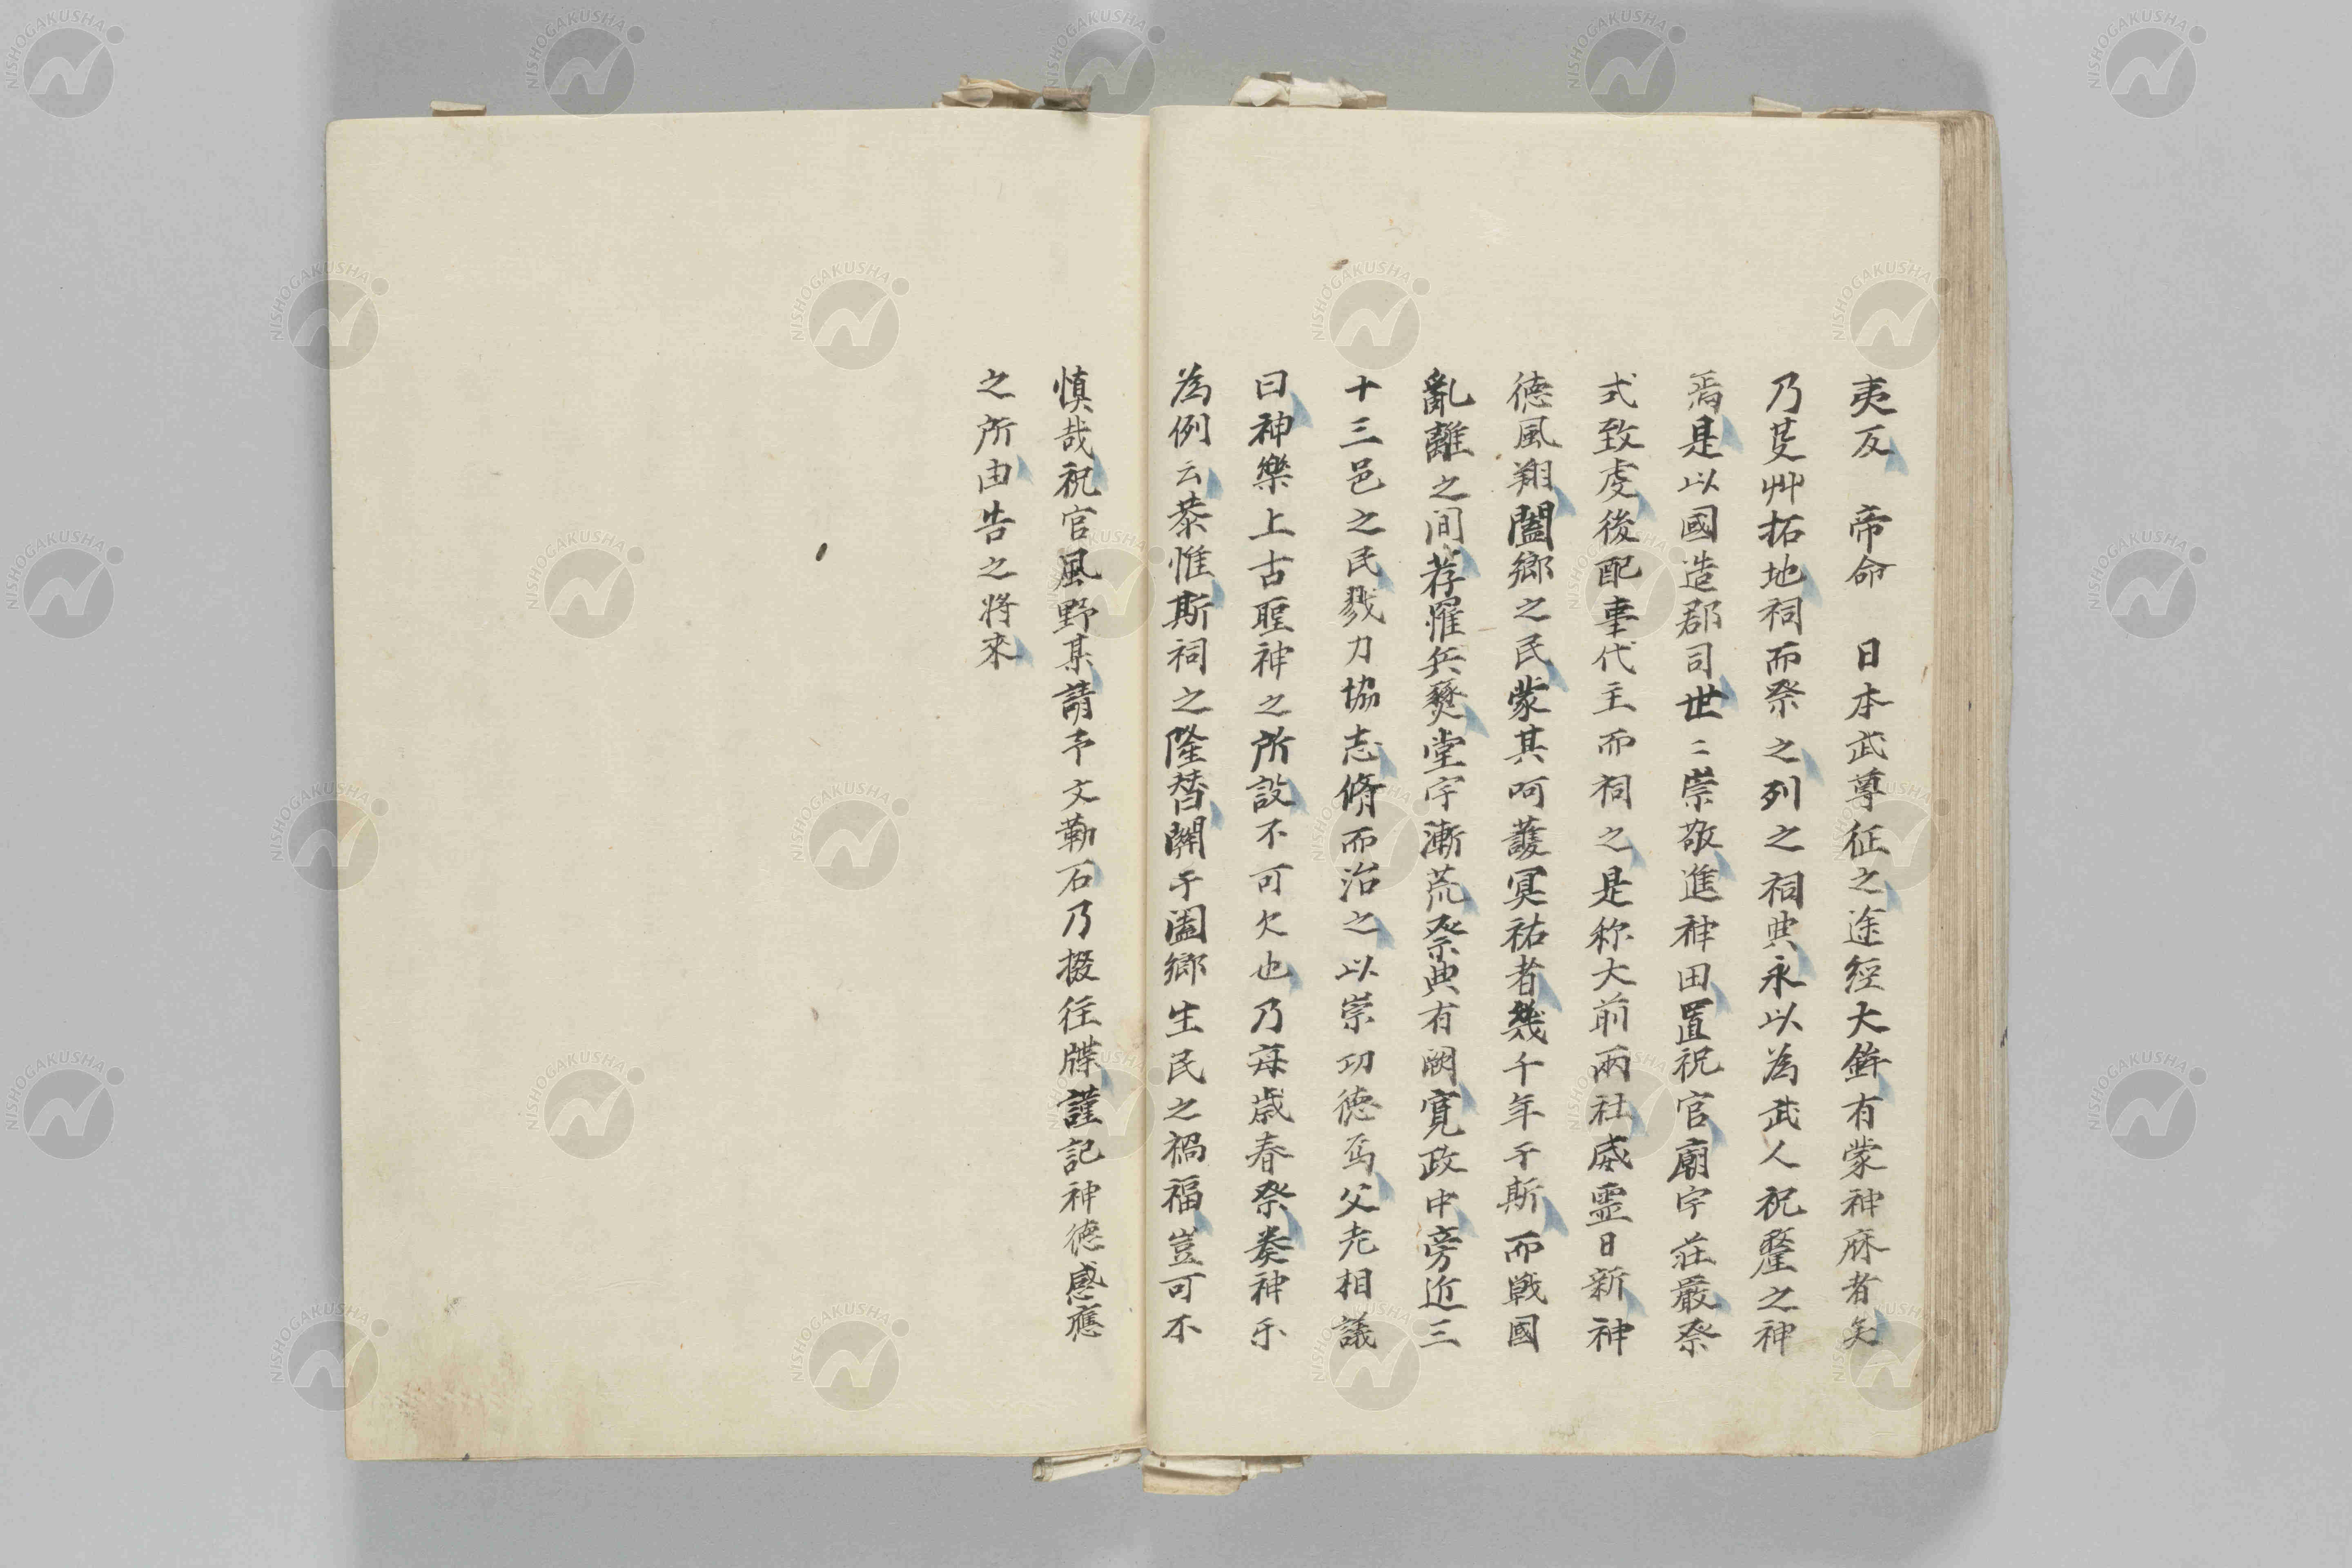 夷反　帝命　日本武尊征之途經大鉾有蒙神庥者矣
乃芟艸拓地祠而祭之列之祠典永以為武人祝釐之神
焉是以國造郡司世〻崇敬進神田置祝官廟宇莊嚴祭
式致虔後配事代主而祠之是称大前兩社威靈日新神
德風翔闔鄉之民蒙其呵護冥祐者幾千年于斯而戰國
亂離之間荐罹兵燹堂宇漸荒祭典有闕寬政中旁近三
十三邑之民戮力協志脩而治之以崇功德焉父老相議
曰神樂上古聖神之所設不可欠也乃每歲春祭奏神乐
為例云恭惟斯祠之隆替關于闔鄉生民之禍福豈可不
慎哉祝官風野某請予文勒石乃掇往牒謹記神德感應
之所由告之將來